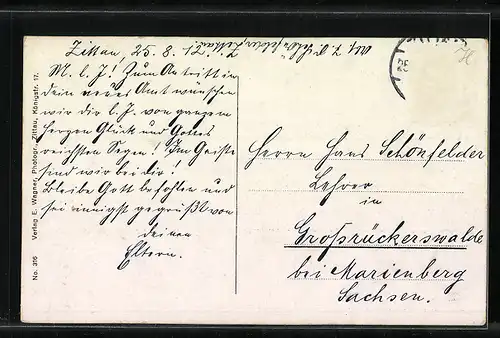 Zittau, 25. 8. 12.
M. l. J.! Zum Antritt in
dein neues Amt wünschen
wir dir l. J. von ganzem
Herzen Glück und Gottes
reichsten Segen! Im Geiste
sind wir bei dir!
Bleibe Gott befohlen und
sei innigst gegrüßt von
deinen
Eltern.
Herrn Hans Schönfelder
Lehrer
in
Großrückerswalde
bei Marienberg
Sachsen.
No. 316 Verlag E. Wagner, Photogr., Zittau, Königstr. 17.